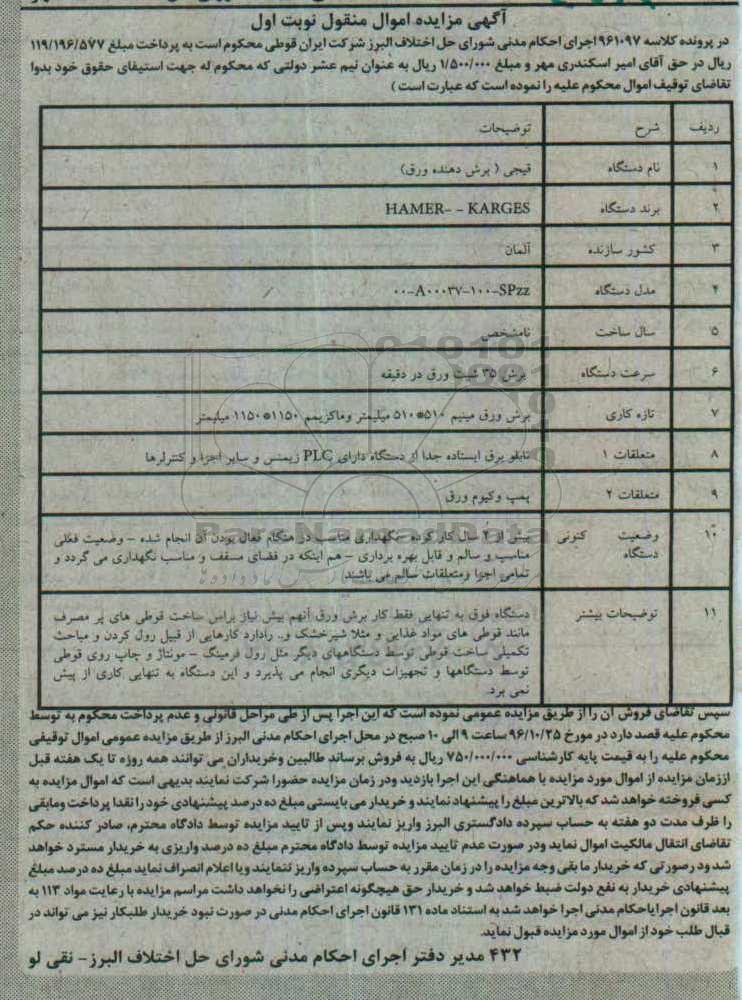 آگهی مزایده اموال منقول نوبت اول
در پرونده کلاسه ۹۶۱۰۹۷ اجرای احکام مدنی شورای حل اختلاف البرز شرکت ایران قوطی محکوم است به پرداخت مبلغ ۱۱۹/۱۹۶/۵۷۷
ریال در حق آقای امیر اسکندری مهر و مبلغ ۱/۵۰۰/۰۰۰ ریال به عنوان نیم عشر دولتی که محکوم له جهت استیفای حقوق خود بدوا
تقاضای توقیف اموال محکوم علیه را نموده است که عبارت است )
ردیف شرح توضیحات
۱ نام دستگاه قیچی ( برش دهنده ورق)
۲ برند دستگاه HAMER- - KARGES
۳ کشور سازنده آلمان
۴ مدل دستگاه ۰۰-A۰۰۰۳۷-۱۰۰-SPzz
۵ سال ساخت نامشخص
۶ سرعت دستگاه برش ۳۵ شیت ورق در دقیقه
۷ تازه کاری برش ورق مینیم ۵۱۰*۵۱۰ میلیمتر وماکزیمم ۱۱۵۰*۱۱۵۰ میلیمتر
۸ متعلقات ۱ تابلو برق ایستاده جدا از دستگاه دارای PLC زیمنس و سایر اجزا و کنترلرها
۹ متعلقات ۲ پمپ وکیوم ورق
۱۰ وضعیت کنونی بیش از ۲ سال کار کرده – نگهداری مناسب در هنگام فعال بودن آن انجام شده – وضعیت فعلی
دستگاه مناسب و سالم و قابل بهره برداری – هم اینکه در فضای مسقف و مناسب نگهداری می گردد و
تمامی اجزا ومتعلقات سالم می باشند)
۱۱ توضیحات بیشتر دستگاه فوق به تنهایی فقط کار برش ورق آنهم پیش نیاز براس ساخت قوطی های پر مصرف
مانند قوطی های مواد غذایی و مثلا شیرخشک و.. رادارد کارهایی از قبیل رول کردن و مباحث
تکمیلی ساخت قوطی توسط دستگاههای دیگر مثل رول فرمینگ – مونتاژ و چاپ روی قوطی
توسط دستگاهها و تجهیزات دیگری انجام می پذیرد و این دستگاه به تنهایی کاری از پیش
نمی برد.
سپس تقاضای فروش آن را از طریق مزایده عمومی نموده است که این اجرا پس از طی مراحل قانونی و عدم پرداخت محکوم به توسط
محکوم علیه قصد دارد در مورخ ۹۶/۱۰/۲۵ ساعت ۹ الی ۱۰ صبح در محل اجرای احکام مدنی البرز از طریق مزایده عمومی اموال توقیفی
محکوم علیه را به قیمت پایه کارشناسی ۷۵۰/۰۰۰/۰۰۰ ریال به فروش برساند طالبین وخریداران می توانند همه روزه تا یک هفته قبل
اززمان مزایده از اموال مورد مزایده با هماهنگی این اجرا بازدید ودر زمان مزایده حضورا شرکت نمایند بدیهی است که اموال مزایده به
کسی فروخته خواهد شد که بالاترین مبلغ را پیشنهاد نمایند و خریدار می بایستی مبلغ ده درصد پیشنهادی خود را نقدا پرداخت ومابقی
را ظرف مدت دو هفته به حساب سپرده دادگستری البرز واریز نمایند وپس از تایید مزایده توسط دادگاه محترم، صادر کننده حکم
تقاضای انتقال مالکیت اموال نماید ودر صورت عدم تایید مزایده توسط دادگاه محترم مبلغ ده درصد واریزی به خریدار مسترد خواهد
شد ود رصورتی که خریدار ما بقی وجه مزایده را در زمان مقرر به حساب سپرده واریز ننمایند ویا اعلام انصراف نماید مبلغ ده درصد مبلغ
پیشنهادی خریدار به نفع دولت ضبط خواهد شد و خریدار حق هیچگونه اعتراضی را نخواهد داشت مراسم مزایده با رعایت مواد ۱۱۳ به
بعد قانون اجرایاحکام مدنی اجرا خواهد شد به استناد ماده ۱۳۱ قانون اجرای احکام مدنی در صورت نبود خریدار طلبکار نیز می تواند در
قبال طلب خود از اموال مورد مزایده قبول نماید.
۴۳۲ مدیر دفتر اجرای احکام مدنی شورای حل اختلاف البرز – نقی لو
ParsNamadData